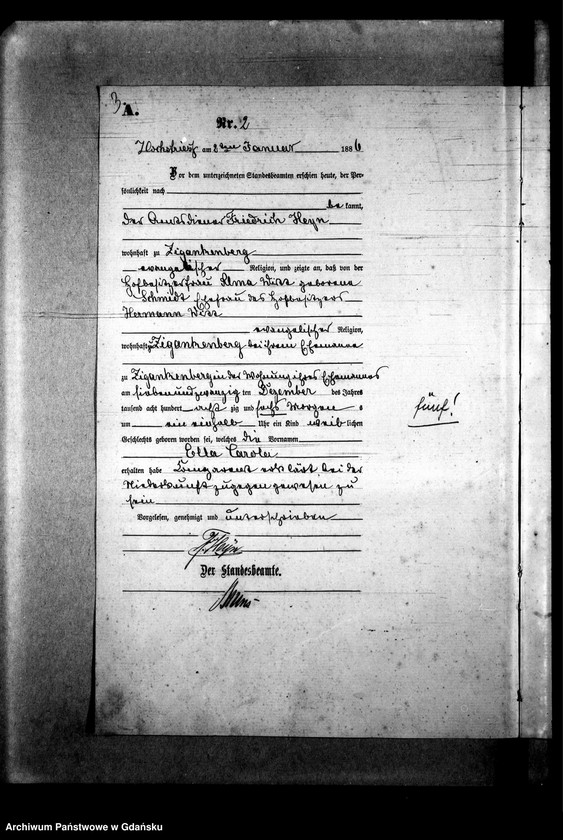 3
A.
Nr. 2
am 2ten Januar 1886
Vor dem unterzeichneten Standesbeamten erschien heute, der Per-
sönlichkeit nach
be kannt,
der Amtsdiener Friedrich Heyn
wohnhaft zu Zigankenberg
evangelischer Religion, und zeigte an, daß von der
Hofbesitzerfrau Alma Witt geborene
Schmidt Ehefrau des Hofbesitzers
Hermann Witt
evangelischer Religion,
wohnhaft zu Zigankenberg bei ihrem Ehemanne
zu Zigankenberg in der Wohnung ihres Ehemannes
am siebenundzwanzig ten Dezember des Jahres
tausend acht hundert acht zig und sechs Morgens
um ein einhalb Uhr ein Kind weib lichen
fünf!
Geschlechts geboren worden sei, welches die Vornamen
Ella Carola
erhalten habe Comparent erklärt bei der
Niederkunft zugegen gewesen zu
sein
Vorgelesen, genehmigt und unterschrieben
F. Heyn
Der Standesbeamte.
Archiwum Państwowe w Gdańsku